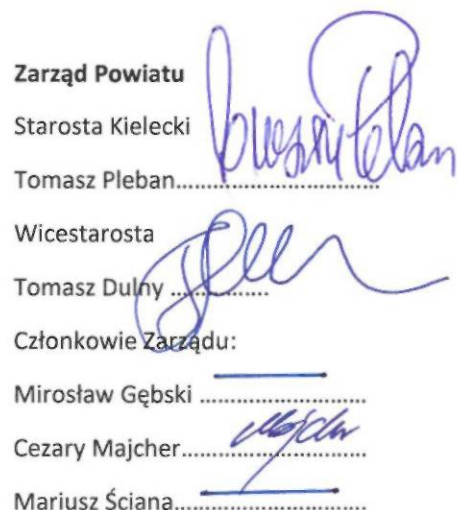 Zarząd Powiatu
Starosta Kielecki
Tomasz Pleban.................................
Wicestarosta
Tomasz Dulny ................
Członkowie Zarządu:
Mirosław Gębski ...........................
Cezary Majcher..............................
Majcher
Mariusz Ściana...............................